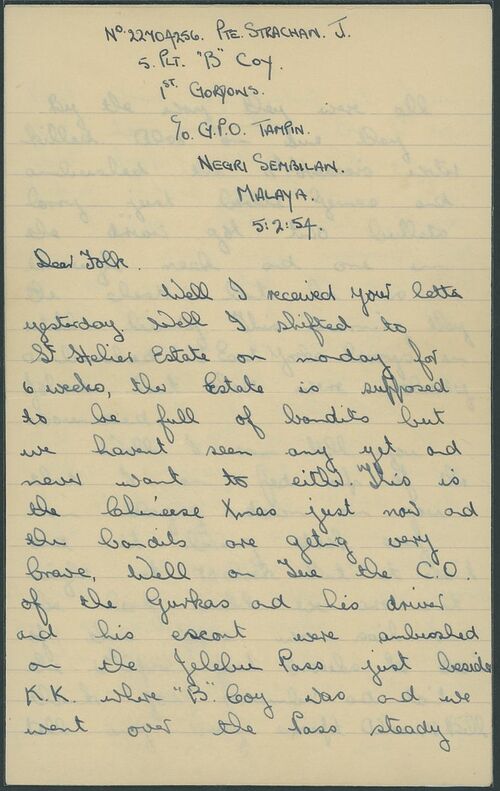 No. 22704256. Pte. Strachan. J.
5. Plt. "B" Coy.
1st. Gordons.
c/o. G.P.O. Tampin.
Negri Sembilan.
Malaya.
5:2:54.
Dear Folk.
Well I received your letter
yesterday. Well I shifted to
St Helier Estate on monday for
6 weeks, the Estate is supposed
to be full of bandits but
we havent seen any yet and
never want to either. This is
the Chineese Xmas just now and
the bandits are geting very
brave, Well on Tue the C.O.
of the Gurkas and his driver
and his escort were ambushed
on the Jelebu Pass just beside
K.K. where "B" Coy was and we
went over the Pass steady